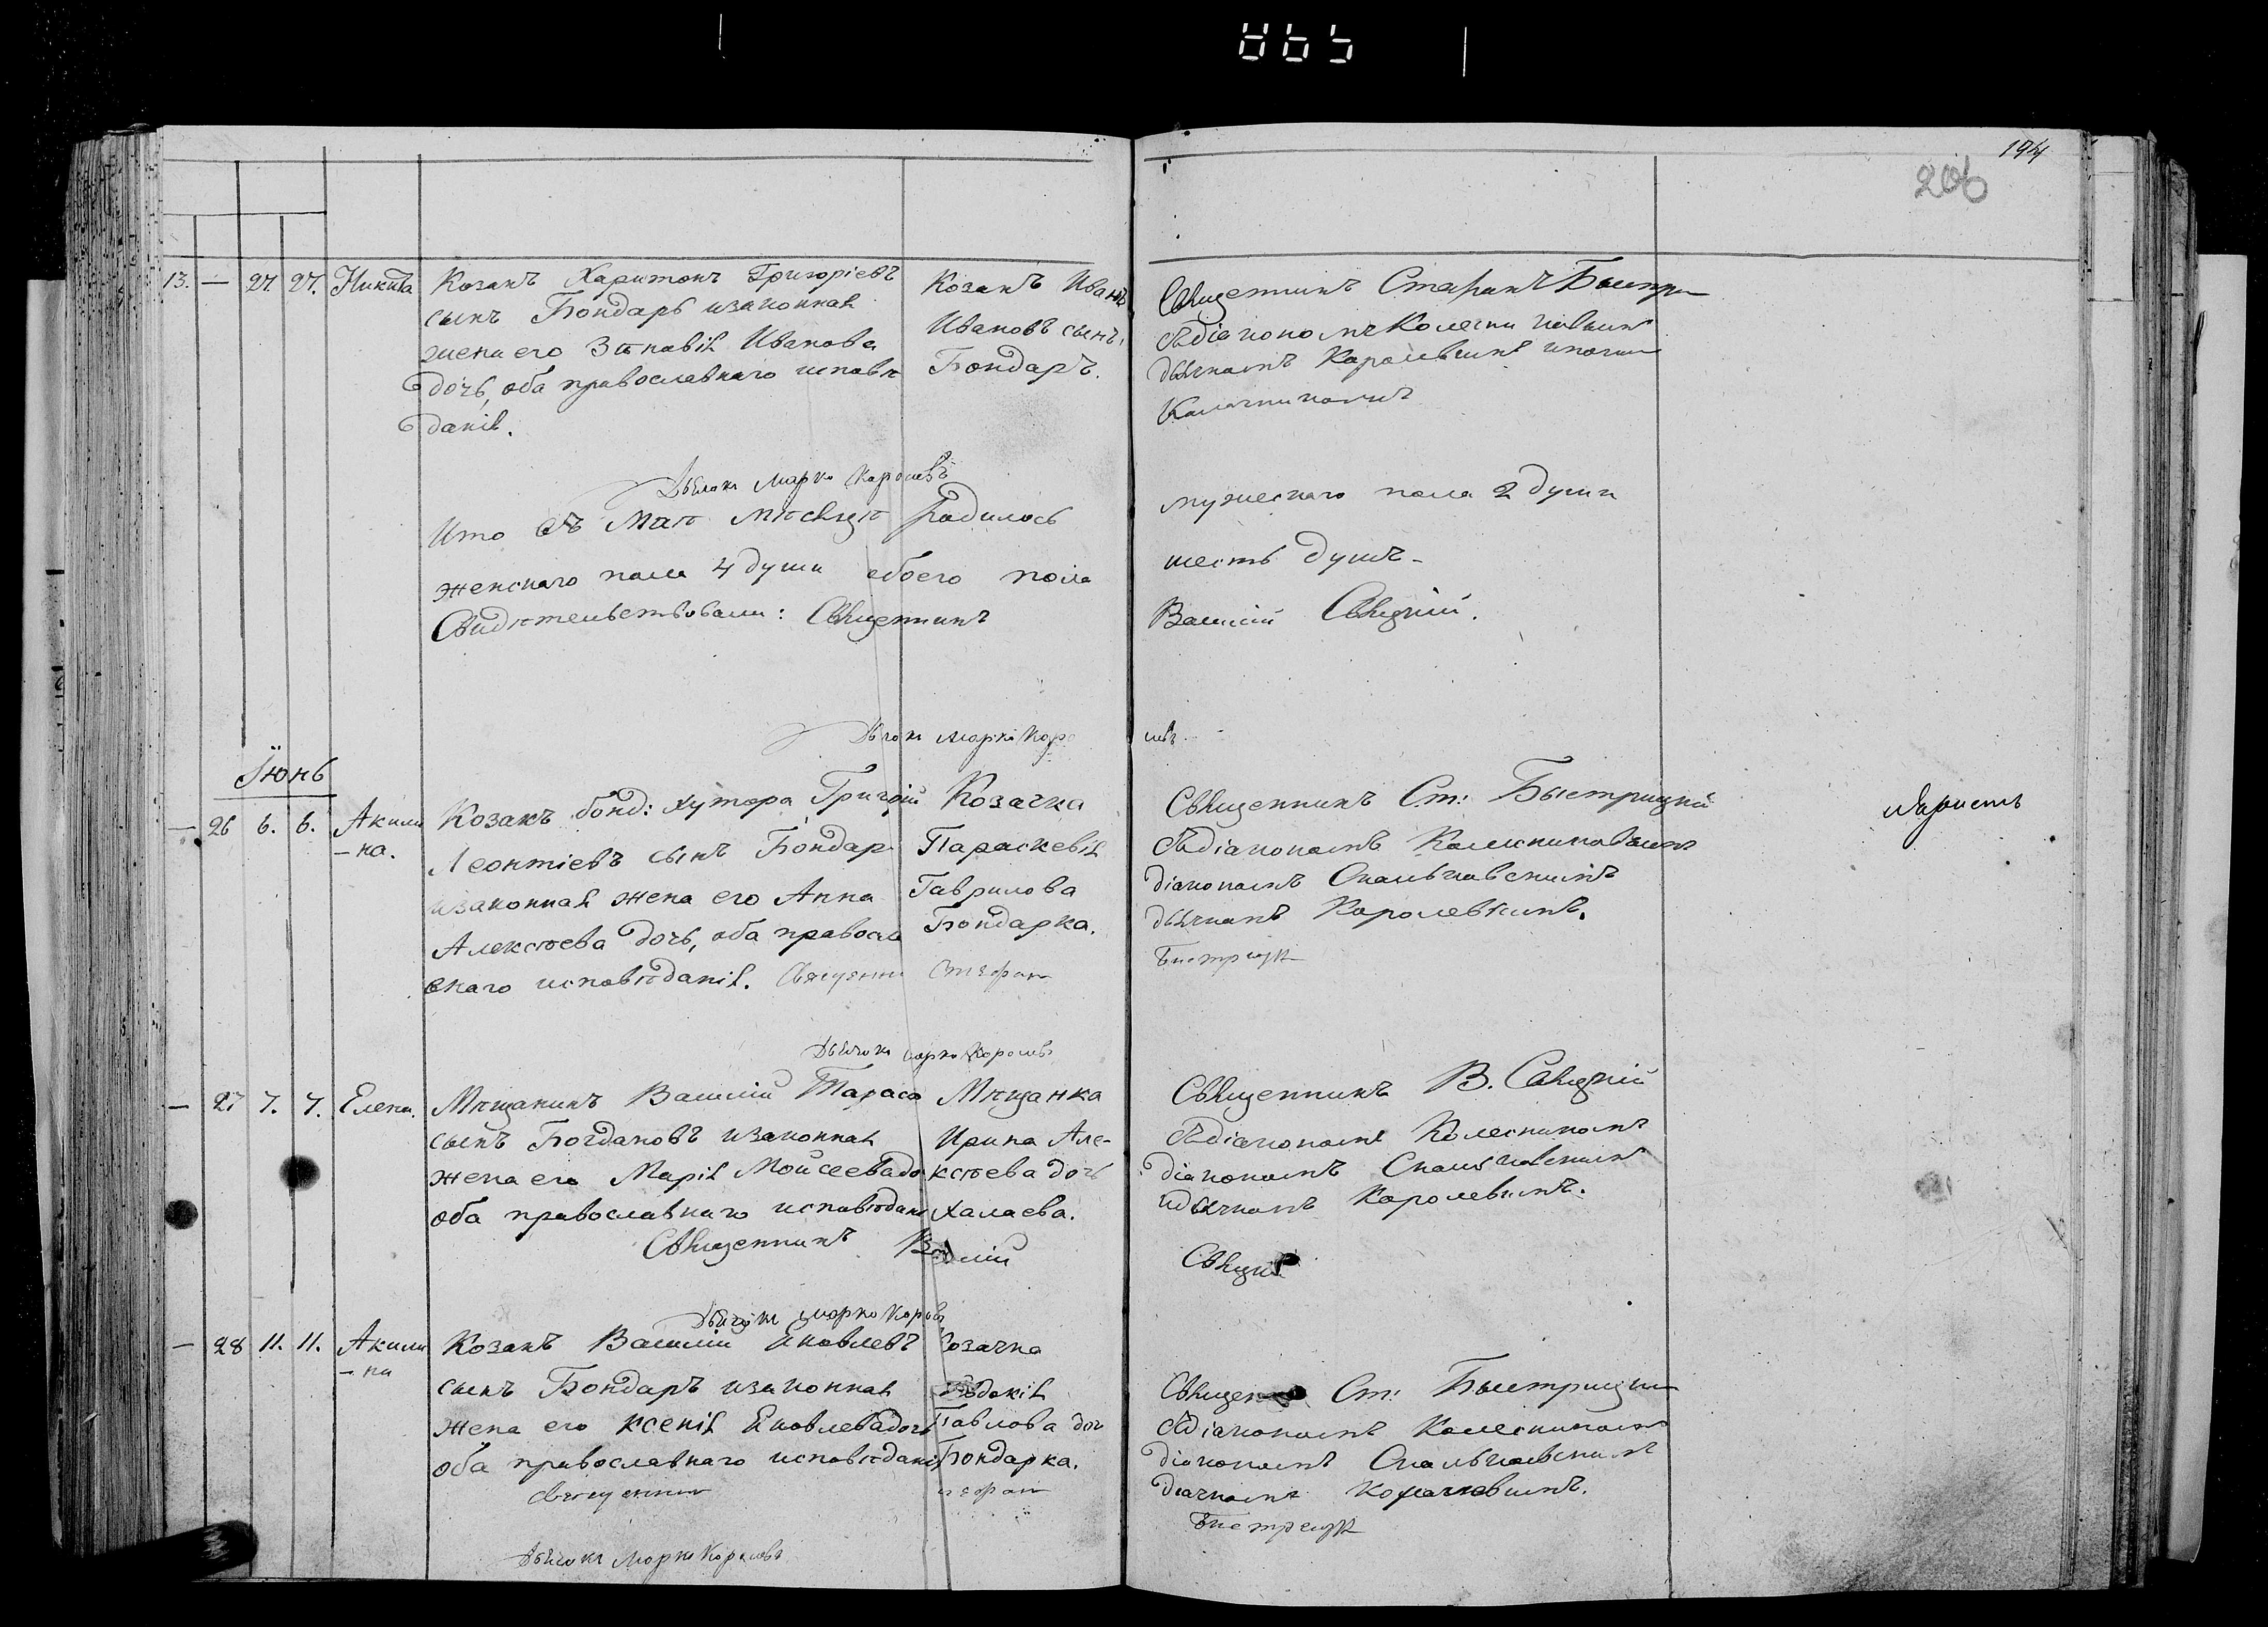 194
206
13. — 27. 27. Никита Козакъ Харитонъ Григоріевъ
сынъ Бондарь изаконная
жена его Зѣновія Иванова
дочь, оба православнаго исповѣ
данія.
Козакъ Иванъ
Ивановъ сынъ
Бондаръ.
Священникъ Стефанъ Быстри
съдіакономъ Колесниковымъ
дьячкомъ Королевымъ
Дьячокъ Марко Королевъ
Ито въ Маѣ мѣсяцѣ родилось
мужескаго пола 2 души
женскаго пола 4 души обоего пола
шесть душъ -
Свидѣтельствовали: Священникъ
Василій Свяцкій.
Дьячокъ Марко Коро
левъ
Іюнь
— 26 6. 6. Акили
-на.
Козакъ бонд: хутора Григорій
Леонтіевъ сынъ Бондар
изаконная жена его Анна
Алексѣева дочь, оба правосла
внаго исповѣданія. Священни Стефан
Быстрицк
Козачка
Параскевія
Гаврилова
Бондарка.
Священникъ Ст: Быстрицкій
съдіакономъ Колесниковымъ
діакономъ
дьячкомъ Королевымъ.
Дьячокъ Марко Королевъ
— 27 7. 7. Елена. Мѣщанинъ Василій Тарасо
сынъ Богдановъ изаконная
жена его Марія Мойсеева до
оба православнаго исповѣдані
Священникъ Василій
Свяцкій
Мѣщанка
Ирина Але-
ксѣева дочь
Халаева.
Священникъ В. Свяцкій
съдіакономъ Колесникомъ
діакономъ
идьячкомъ Королевымъ.
Дьячокъ Марко Королевъ
— 28 11. 11. Акили
-на
Козакъ Василій Яковлевъ
сынъ Бондаръ изаконная
жена его Ксенія Яковлева дочь
оба православнаго исповѣданія
священник Стефан
Быстрицк
Козачка
Евдокія
Павлова доч
Бондарка.
Священ Ст: Быстрицки
съдіакономъ Колесникомъ
діакономъ
дячкомъ
Дьячокъ Марко Королевъ